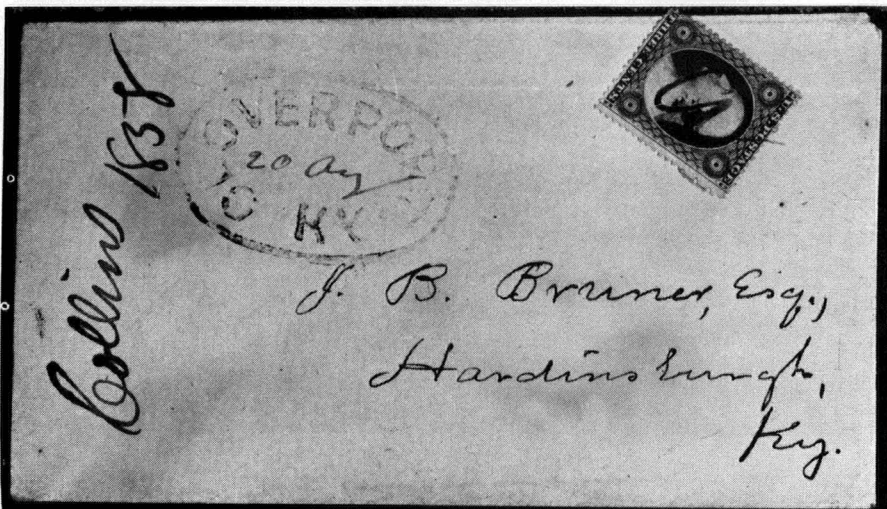 Collins 1838
CLOVERPORT
20 Aug
KY
J. B. Bruner, Esq.,
Hardinsburgh,
Ky.